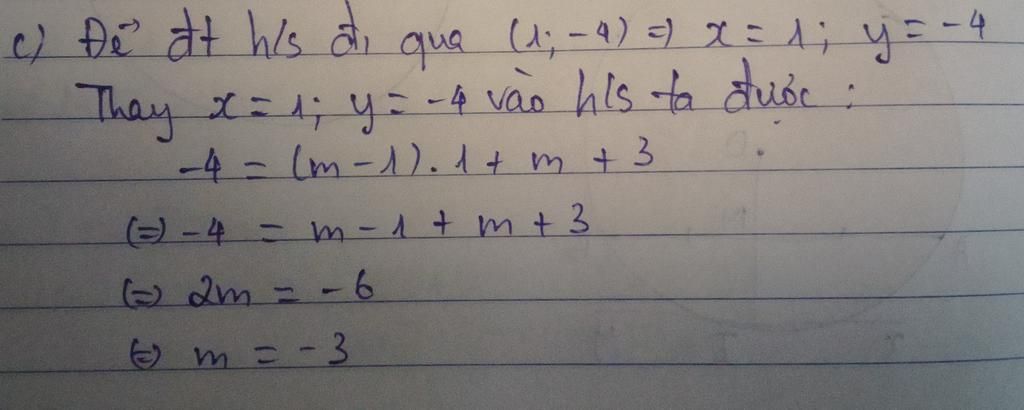 c) Để đt h/s đi qua (1; -4) => x = 1; y = -4
Thay x = 1; y = -4 vào h/s ta được :
-4 = (m - 1) . 1 + m + 3
(=) -4 = m - 1 + m + 3
(=) 2m = -6
(=) m = -3